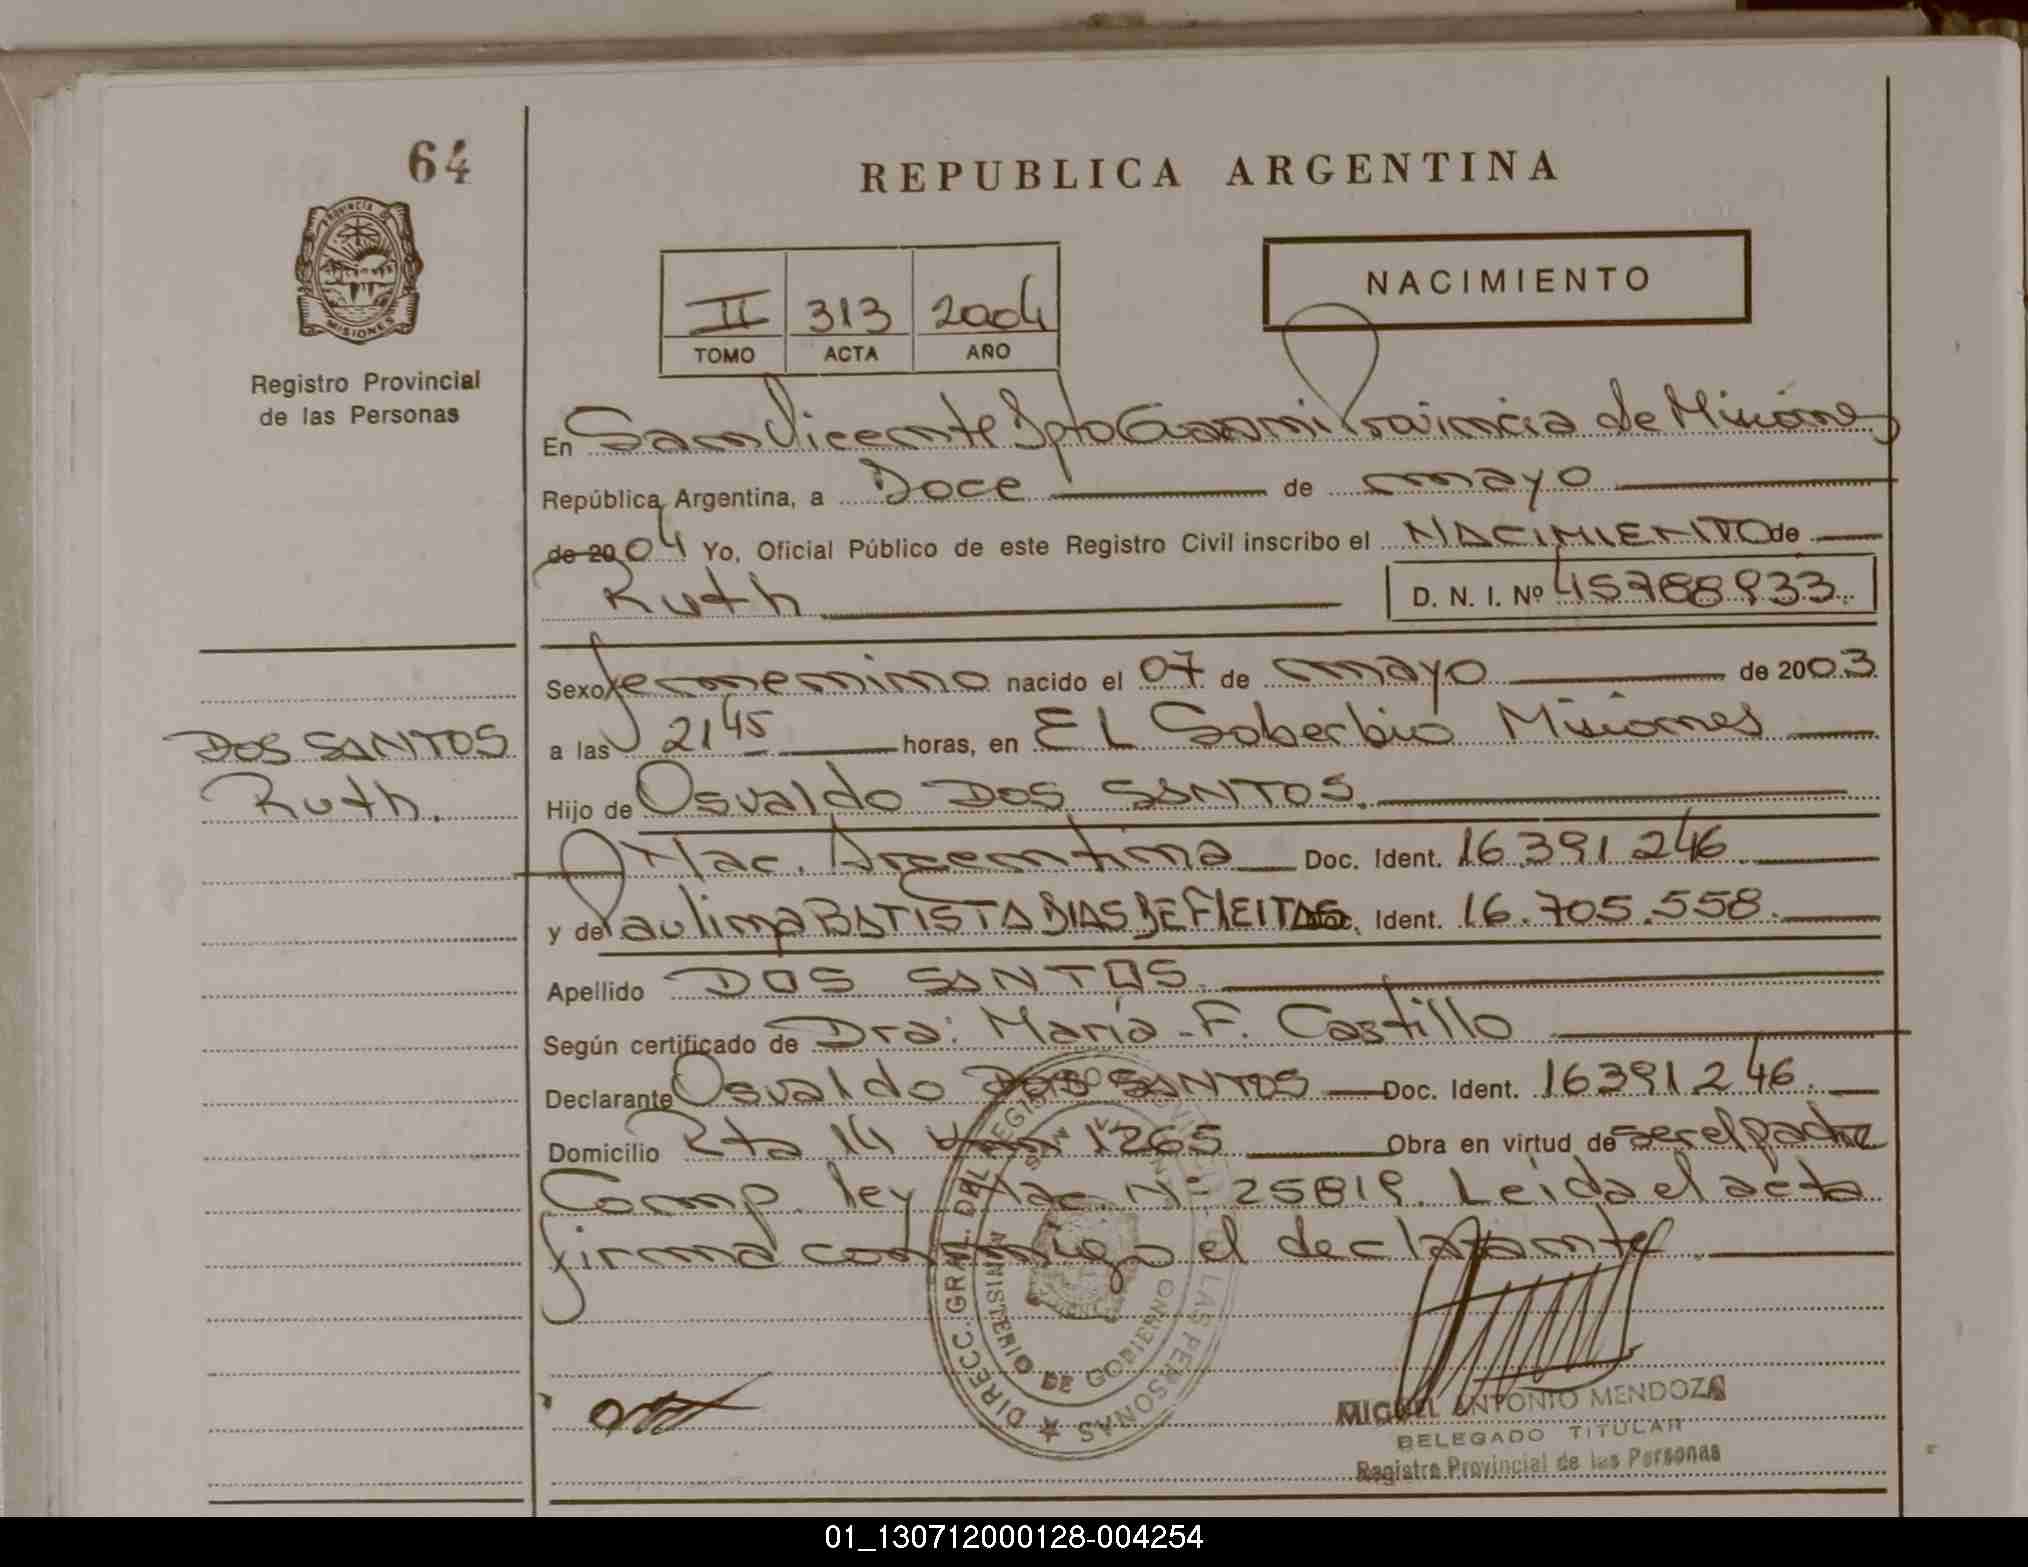 64
REPUBLICA ARGENTINA
PROVINCIA DE
MISIONES
Registro Provincial
de las Personas
II 313 2004
TOMO ACTA AÑO
NACIMIENTO
En San Vicente Dpto Guarani Provincia de Misiones
República Argentina, a Doce de mayo
de 2004 Yo, Oficial Público de este Registro Civil inscribo el NACIMIENTO de
Ruth D. N. I. Nº 45788933
Sexo femenino nacido el 07 de mayo de 2003
a las 21 45 horas, en EL Soberbio Misiones
DOS SANTOS
Ruth.
Hijo de Osvaldo DOS SANTOS.
Nac. Argentina Doc. Ident. 16.391.246
y de Paulina BATISTA DIAS DE FLEITAS Doc. Ident. 16.705.558.
Apellido DOS SANTOS.
Según certificado de Dra: María F. Castillo
Declarante Osvaldo DOS SANTOS Doc. Ident. 16391246.
Domicilio Rta 14 km 1265 Obra en virtud de ser el padre
Comp. ley Nac. Nº 25819. Leida el acta
firma conmigo el declarante.
DIRECC. GRAL. DEL REGISTRO PROVINCIAL DE LAS PERSONAS
MINISTERIO DE GOBIERNO
MIGUEL ANTONIO MENDOZA
DELEGADO TITULAR
Registro Provincial de las Personas
01_130712000128-004254